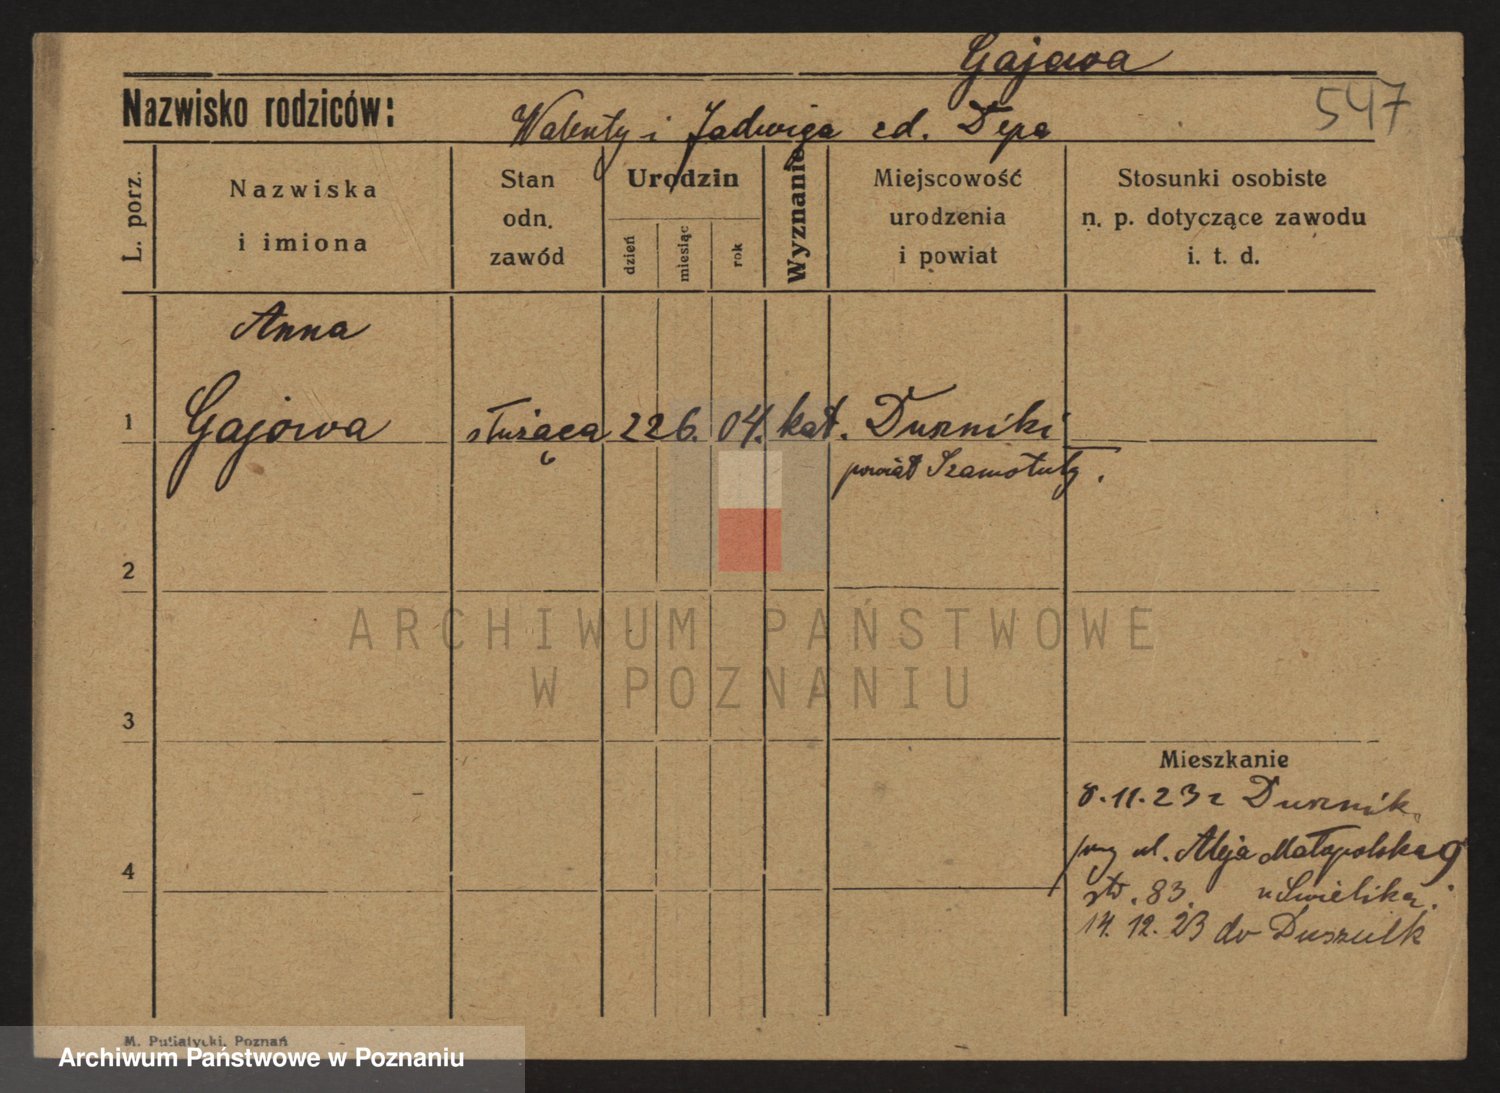 Gajowa
547
Nazwisko rodziców: Walenty i Jadwiga zd. Depa
L. porz.
Nazwiska
i imiona
Stan
odn.
zawód
Urodzin
dzień
miesiąc
rok
Wyznanie
Miejscowość
urodzenia
i powiat
Stosunki osobiste
n. p. dotyczące zawodu
i. t. d.
Anna
1 Gajowa służąca 22 6. 04. kat. Duszniki
powiat Szamotuły.
2
ARCHIWUM PAŃSTWOWE
W POZNANIU
3
Mieszkanie
8.11.23 z Dusznik
ul. Aleja Małopolska 9
4
83. u
14.12.23 do
M. Putiatycki, Poznań
Archiwum Państwowe w Poznaniu